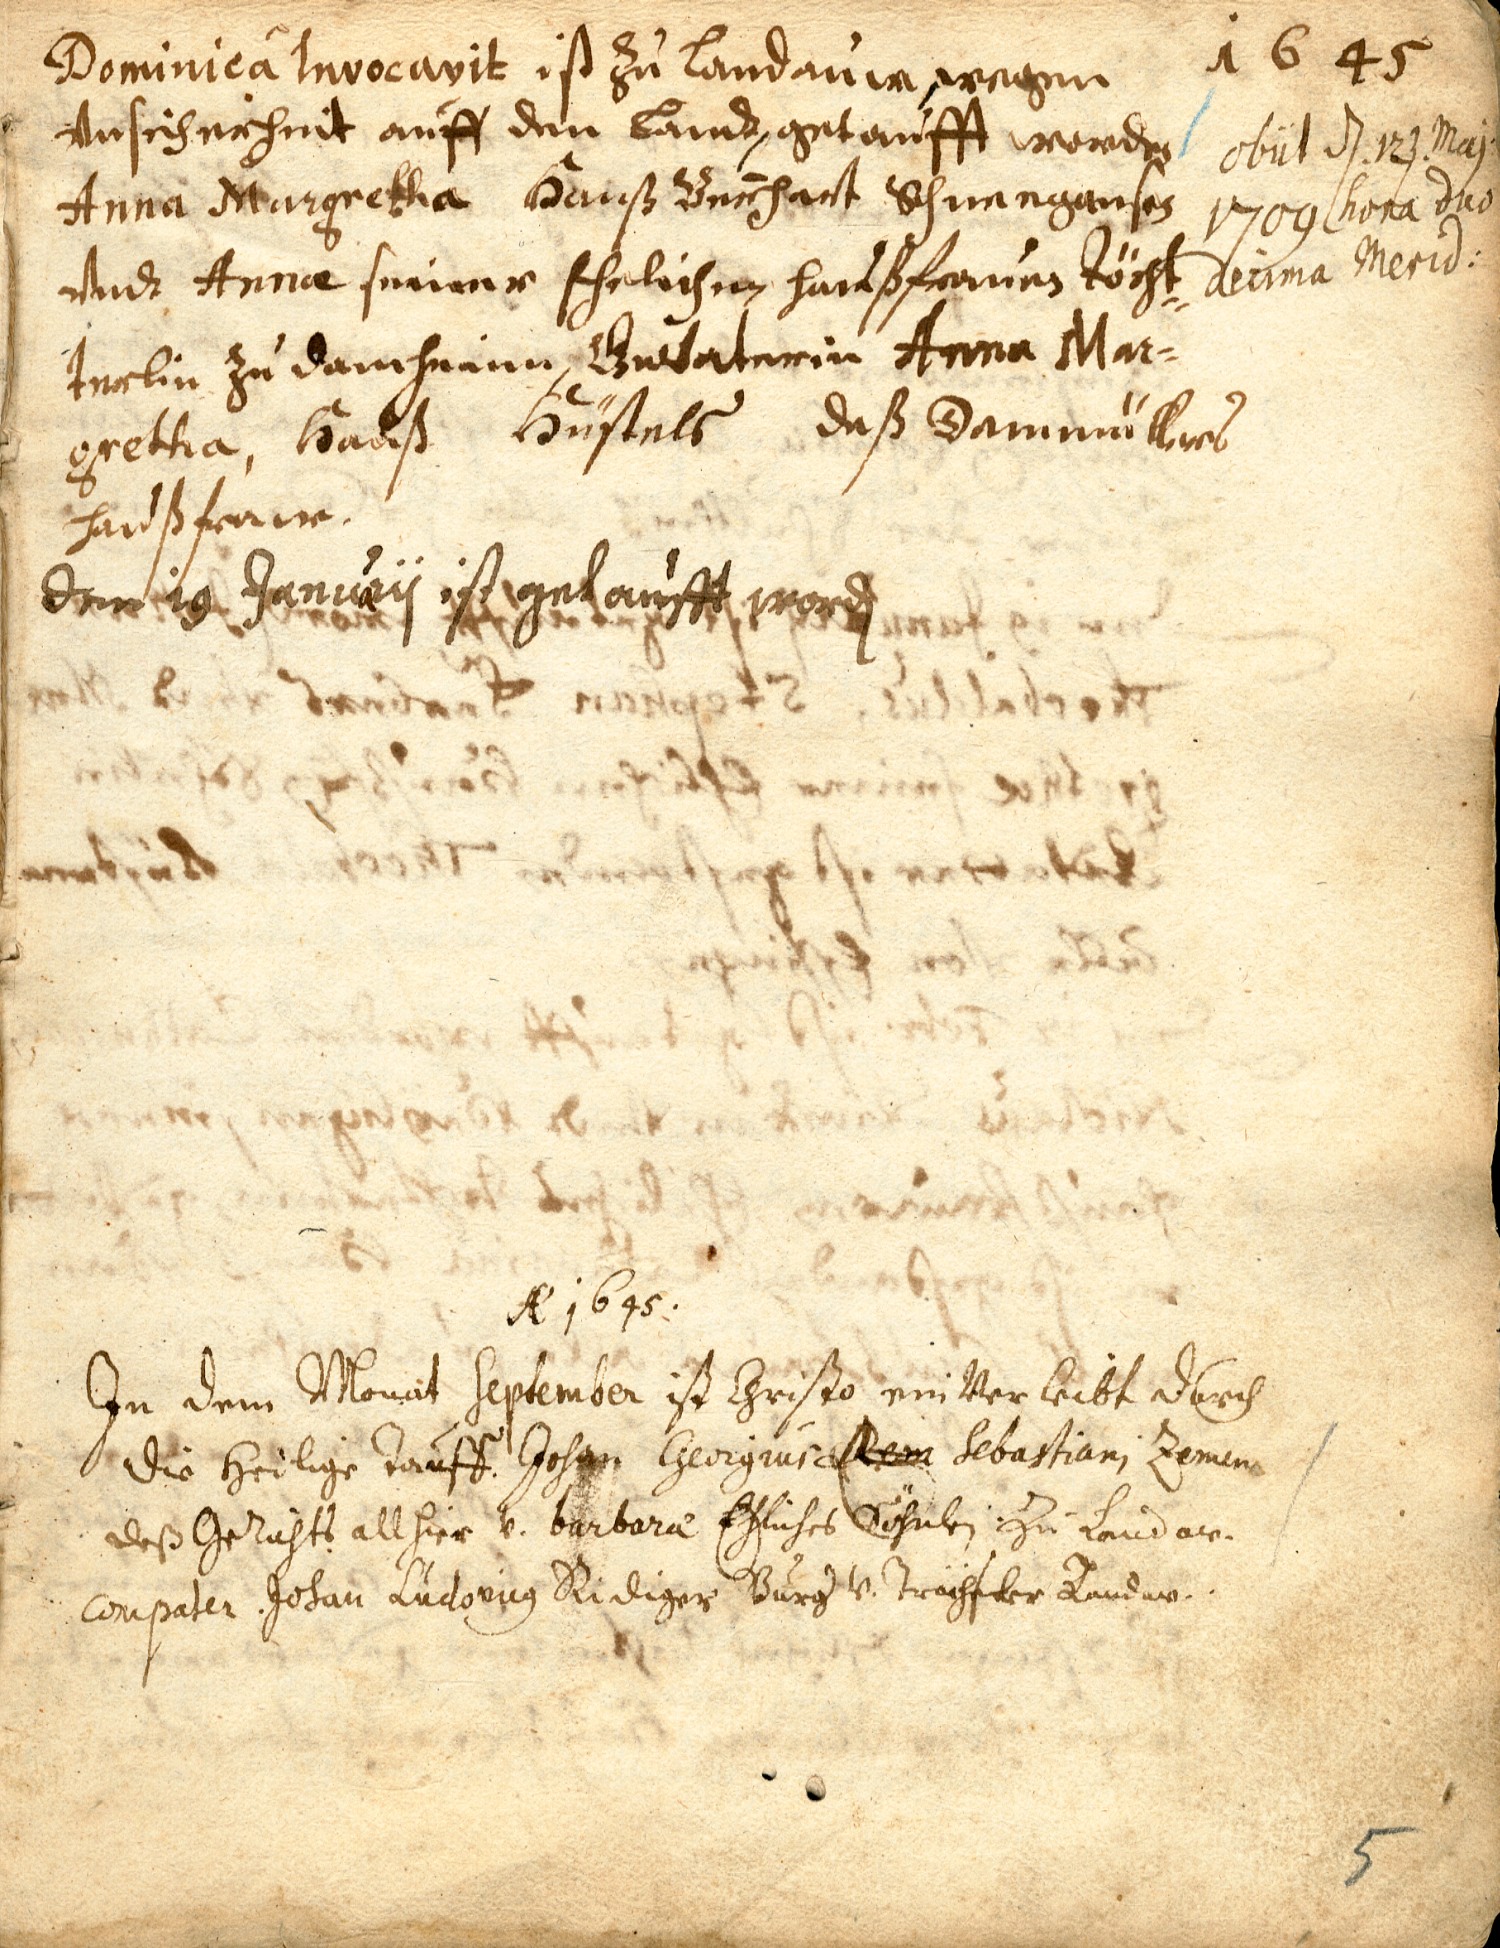 1645
Dominicâ Invocavit ist zu Landauw, wegen
Unsicherheit auff dem Land, getaufft worden
Anna Margretha Hanß Bernhart Schneegansen
undt Annæ seiner Ehelichen haußfrauen Töcht=
terlin zu Damheim, Gevaterin Anna Mar=
gretha, Hanß Hüstels deß Dammüllers
haußfrauw.
obiit d. 12. Maij.
1709 hora duo
decima Merid:
den 19 Januarij ist getaufft word
Aº 1645:
In dem Monat September ist Christo ein Verleibt durch
die Heilige Tauff. Johan Georgius Sebastianj Zemen
deß Gerichts allhier v. barbaræ Ehliches Söhnlein zu Landaw.
Compater Johan Ludovicus Ridiger Burg v. Landaw.
5